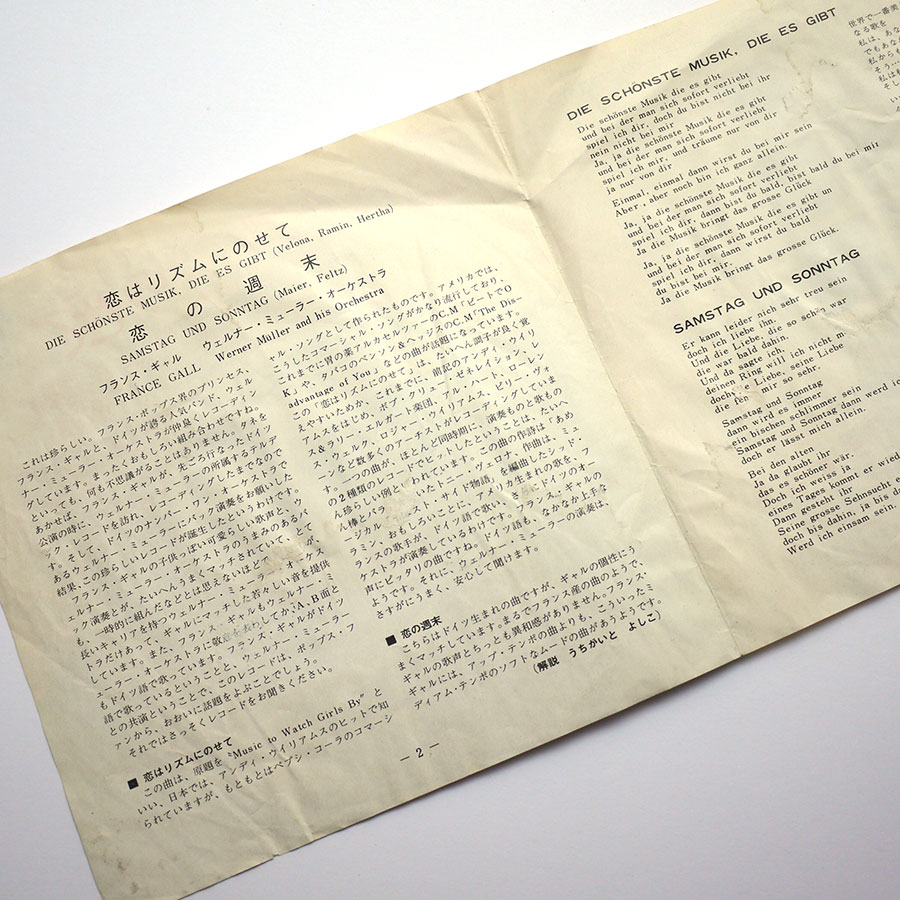 恋はリズムにのせて
DIE SCHÖNSTE MUSIK, DIE ES GIBT (Velona, Ramin, Hertha)
恋の週末
SAMSTAG UND SONNTAG (Maier, Feltz)
フランス・ギャル ウェルナー・ミューラー・オーケストラ
FRANCE GALL Werner Müller and his Orchestra
これは珍しい。フランス・ポップス界のプリンセス、
フランス・ギャルと、ドイツが誇る人気バンド、ウェル
ナー・ミューラー・オーケストラが仲良くレコーディン
グしています。まったくおもしろい組み合わせですね。
といっても、何も不思議がることはありません。タネを
あかせば、フランス・ギャルが、先ごろ行なったドイツ
公演の時に、ウェルナー・ミューラーの所属するテルデ
ック・レコードを訪れ、レコーディングしたまでなので
す。そして、ドイツのナンバー・ワン・オーケストラで
あるウェルナー・ミューラーにバック演奏をお願いした
結果、この珍しいレコードが誕生したというわけです。
フランス・ギャルの子供っぽい可愛らしい歌声と、ウ
ェルナー・ミューラー・オーケストラのうまみのあるバ
ック演奏とが、たいへんうまくマッチされていて、とて
も、一時的に組んだなどとは思えないほどです。が、
長いキャリアを持つウェルナー・ミューラー・オーケス
トラだけあって、ギャルにマッチした若々しい音を提供
しています。また、フランス・ギャルもウェルナー・ミ
ューラー・オーケストラに敬意を表わしてか、A、B面と
もドイツ語で歌っています。フランス・ギャルがドイツ
語で歌っているということと、ウェルナー・ミューラー
との共演ということで、このレコードは、ポップス・フ
ァンから、おおいに話題をよぶことでしょう。
それではさっそくレコードをお聞きください。
■ 恋はリズムにのせて
この曲は、原題を“Music to Watch Girls By”と
いい、日本では、アンディ・ウイリアムスのヒットで知
られていますが、もともとはペプシ・コーラのコマーシ
ャル・ソングとして作られたものです。アメリカでは、
こうしたコマーシャル・ソングがかなり流行しており、
これまでに胃の薬アルカセルツァーのC.M『ビートでO
K』や、タバコのベンソン&ヘッジスのC.M『The Dis-
advantage of You』などの曲が話題になっています。
この「恋はリズムにのせて」は、たいへん調子が良く覚
えやすいためか、これまでに、前記のアンディ・ウイリ
アムスをはじめ、ボブ・クリュー・ゼネレイション、レ
ス&ラリー・エルガート楽団、アル・ハート、ローレン
ス・ウェルク、ロジャー・ウイリアムス、ビリー・ヴォ
ーンなど数多くのアーチストがレコーディングしていま
す。一つの曲が、ほとんど同時期に、演奏ものと歌もの
の2種類のレコードでヒットしたということは、たいへ
ん珍しい例といわれています。この曲の作詩は「あめ
ん棒とバラ
いたトニー・ヴェロナ、作曲は、ミュ
ージカル
スト・サイド物語』を編曲したシッド・
ラミン。
おもしろいことに、アメリカ生まれの歌を、フ
ランスの歌手が、ドイツ語で歌い、さらにドイツのオー
ケストラが演奏しているわけです。フランス・ギャルの
声にピッタリの曲ですね。ドイツ語も、なかなか上手な
ようです。それに、ウェルナー・ミューラーの演奏は、
さすがにうまく、安心して聞けます。
■ 恋の週末
こちらはドイツ生まれの曲ですが、ギャルの個性にう
まくマッチしています。まるでフランス産の曲のようで、
ギャルの歌声とちっとも異和感がありません。フランス・
ギャルには、アップ・テンポの曲よりも、こういったミ
ディアム・テンポのソフトなムードの曲があうようです。
(解説 うちがいと よしこ)
— 2 —
DIE SCHÖNSTE MUSIK, DIE ES GIBT
Die schönste Musik die es gibt
und bei der man sich sofort verliebt
spiel ich dir, doch du bist nicht bei ihr
nein nicht bei mir
Ja, ja die schönste Musik die es gibt
und bei der man sich sofort verliebt
spiel ich mir, und träume nur von dir
ja nur von dir
Einmal, einmal dann wirst du bei mir sein
Aber, aber noch bin ich ganz allein.
Ja, ja die schönste Musik die es gibt
und bei der man sich sofort verliebt
spiel ich dir, dann bist du bald, bist bald du bei mir
Ja die Musik bringt das grosse Glück
Ja, ja die schönste Musik die es gibt un
und bei der man sich sofort verliebt
spiel ich dir, dann wirst du bald
du bist bei mir.
Ja die Musik bringt das grosse Glück.
SAMSTAG UND SONNTAG
Er kann leider nich sehr treu sein
doch ich liebe ihn.
Und die Liebe, die so schön war
die war bald dahin.
Und da sagte ich,
deinen Ring will ich nicht m-
doch die Liebe, seine Liebe
die bei mir so sehr.
Samstag und Sonntag
dann wird es immer
ein bischen schlimmer sein
Samstag und Sonntag dann werd ic
doch er lässt mich allein.
Bei den alten
Ja da glaubt ihr
das es schöner wär.
Doch ich weiss ja
eines Tages kommt er wied
Dann gesteht ihr
Seine grosser Sehnsucht e
doch bis dahin, ja bis d
Werd ich einsam sein.
世界で一番美
なる歌を
私は、あな
でもあな
私からも
そう…
私は
そし
い